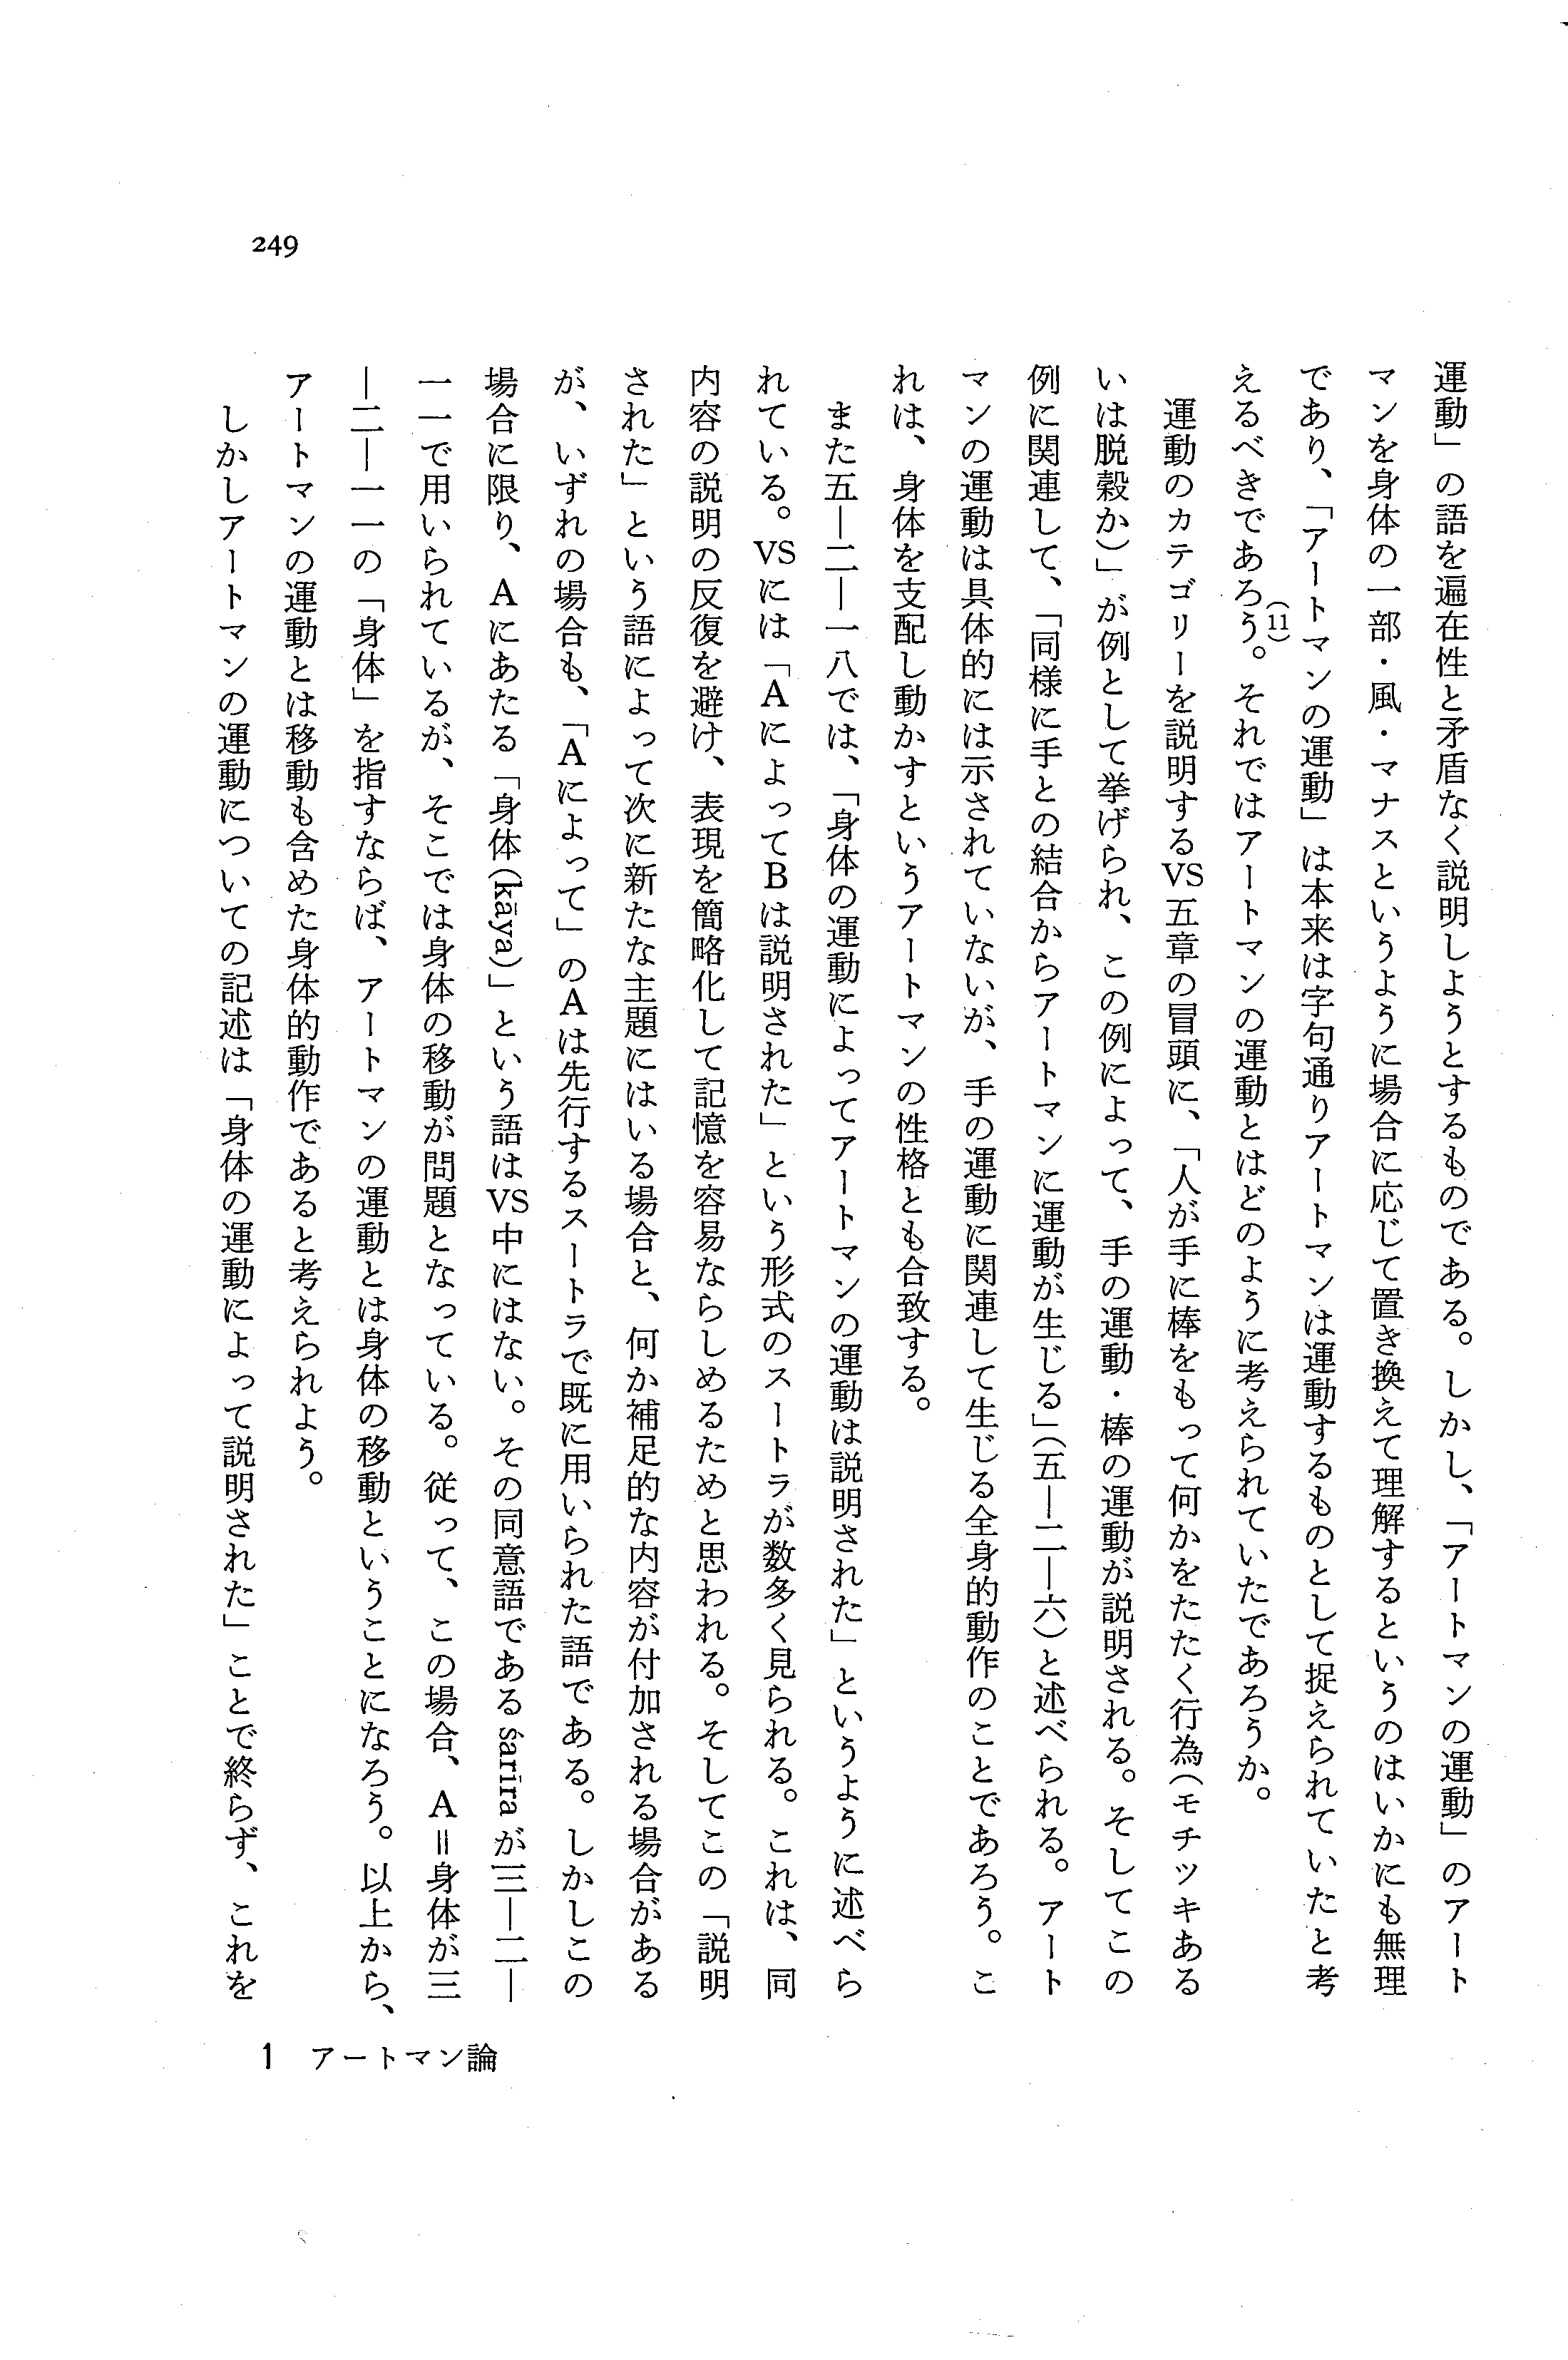 249
運動」の語を遍在性と矛盾なく説明しようとするものである。しかし、「アートマンの運動」のアート
マンを身体の一部・風・マナスというように場合に応じて置き換えて理解するというのはいかにも無理
であり、「アートマンの運動」は本来は字句通りアートマンは運動するものとして捉えられていたと考
えるべきであろう。(11)それではアートマンの運動とはどのように考えられていたであろうか。
運動のカテゴリーを説明するVS五章の冒頭に、「人が手に棒をもって何かをたたく行為(モチツキある
いは脱穀か)」が例として挙げられ、この例によって、手の運動・棒の運動が説明される。そしてこの
例に関連して、「同様に手との結合からアートマンに運動が生じる」(五—二—六)と述べられる。アート
マンの運動は具体的には示されていないが、手の運動に関連して生じる全身的動作のことであろう。こ
れは、身体を支配し動かすというアートマンの性格とも合致する。
また五—二—一八では、「身体の運動によってアートマンの運動は説明された」というように述べら
れている。VSには「AによってBは説明された」という形式のスートラが数多く見られる。これは、同
内容の説明の反復を避け、表現を簡略化して記憶を容易ならしめるためと思われる。そしてこの「説明
された」という語によって次に新たな主題にはいる場合と、何か補足的な内容が付加される場合がある
が、いずれの場合も、「Aによって」のAは先行するスートラで既に用いられた語である。しかしこの
場合に限り、Aにあたる「身体(kāya)」という語はVS中にはない。その同意語であるśarīraが三—二—
一一で用いられているが、そこでは身体の移動が問題となっている。従って、この場合、A＝身体が三
—二—一一の「身体」を指すならば、アートマンの運動とは身体の移動ということになろう。以上から、
アートマンの運動とは移動も含めた身体的動作であると考えられよう。
しかしアートマンの運動についての記述は「身体の運動によって説明された」ことで終らず、これを
1 アートマン論